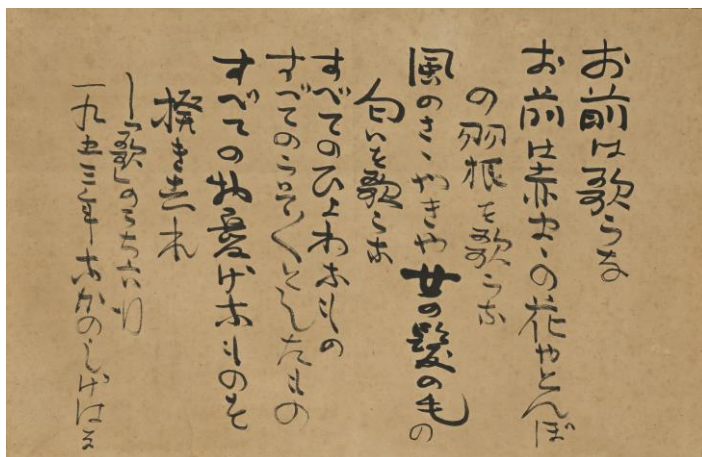 お前は歌うな
お前は赤まゝの花やとんぼ
の羽根を歌うな
風のさゝやきや女の髪の毛の
匂いを歌うな
すべてのひよわなもの
すべてのうそ〱としたもの
すべての物憂げなものを
撥き去れ
「歌」のうち六行
一九五三年なかのしげはる